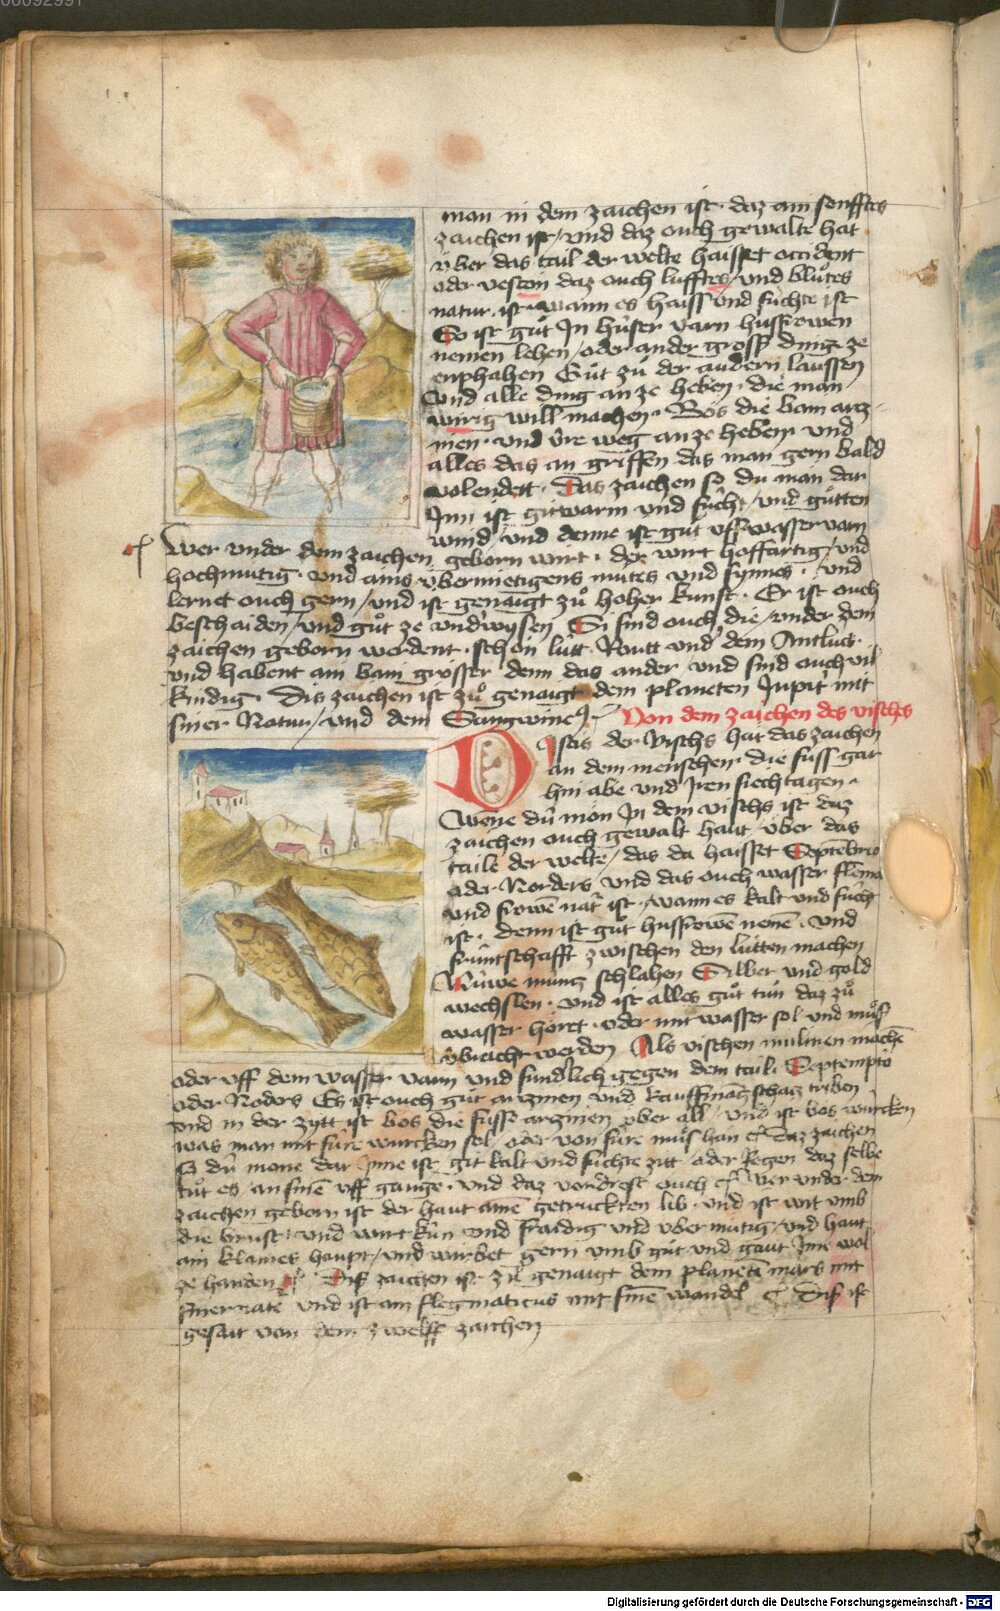 00092991
man in dem zaichen ist · daz ain senfftes
zaichen ist / vnd daz ouch gewalte hat
über das tail der welte haisset occident
oder vesten daz ouch lufftes / vnd blůtes
natur ist · wann es haiss vnd fúchte ist
So ist gůt In húser varn husfrowen
nemen lehen / oder ander gross ding ze
enphahen Gůt zu der audern laussen
vnd alle ding an ze heben · die man
wirig will machen · Bös die bain artz-
nien · vnd vre weg an ze heben · vnd
alles das an griffen das man gern bald
volendett · Das zaichen so du man dar
Inn ist git warm vnd fúcht / vnd gútten
wind / vnd denne ist gůt vff wasser varn
Wer vnder dem zaichen geborn wirt · der wirt hoffärtig / vnd
hochmutig · vnd ains v́bermietigens mutes vnd synnes · vnd
lernet ouch gern / vnd ist genaigt zů hoher kunst · Er ist ouch
beschaiden / vnd gůt ze vnderwysen Si sind ouch die / vnder dem
zaichen geborn werdent · schön lútt · Rott vnder dem Antlut ·
vnd habent ain bain grösser denn das ander vnd sind ouch vil
kindig · Dis zaichen ist zů genaigt dem planeten Jupiter mit
siner Natur / vnd dem Sangwineus
Von dem zaichen des visches
Piscis der Vischs hat das zaichen
an dem menschen · die fúss gar
hin abe vnd Iren siechtagen ·
Wene dú mon In dem vischs ist daz
zaichen ouch gewalt haut über das
taile der welte / das da haisset Septembrio
oder Norders vnd das ouch wasser flema
vnd frowen natur ist · wann es kalt vnd fúcht
ist · denn ist gůt husfrowē nemē · vnd
frúntschafft zwischen den lútten machen
Núwe muntz schlahen Silber vnd gold
wechslen · vnd ist alles gůt tůn daz zů
wasser höret · oder mit wasser sol vnd můs
v́bracht werden Als vischen múlinen machē
oder vff dem wasser varn vnd sundlich gegen dem tail Septemptō
oder Noders Es ist ouch gůt artznien vnd kauffmāschatz triben
vnd in der zytt ist bös die fússe artznien v́ber all / vnd ist bös wúrcken
was man mit fúre wurcken sol / oder von fúre můs han Daz zaichen
So dú mone dar Inne ist git kalt vnd fúchte zitt oder Regen daz selbe
tůt es an sinē vff gange · vnd daz vordrost ouch Wer vnder dem
zaichen geborn ist der haut ainē getruckten lib · vnd ist wit vmb
die brust · vnd wirt kún vnd fraidig vnd v́bermútig / vnd haut
ain klaines hanpt / vnd wirbet gern vmb gůt vnd gaut Ime wol
ze handen Dis zaichen ist zů genaigt dem planetē mars mit
siner nate vnd ist ain flegmaticus mit sinē wandel Dis ist
gesait von dem zwelff zaichen
Digitalisierung gefördert durch die Deutsche Forschungsgemeinschaft - DFG